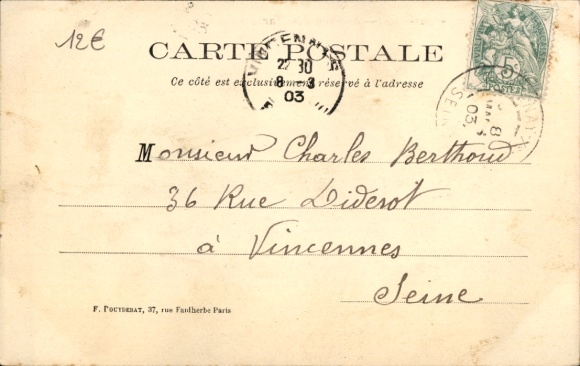 12€
CARTE POSTALE
Ce côté est exclusivement réservé à l'adresse
VINCENNES
22 30
8 - 3
03
5
POSTES
8
MARS
03
SEINE
Monsieur Charles Berthoud
36 Rue Diderot
à Vincennes
Seine
F. POUYDEBAT, 37, rue Faidherbe Paris